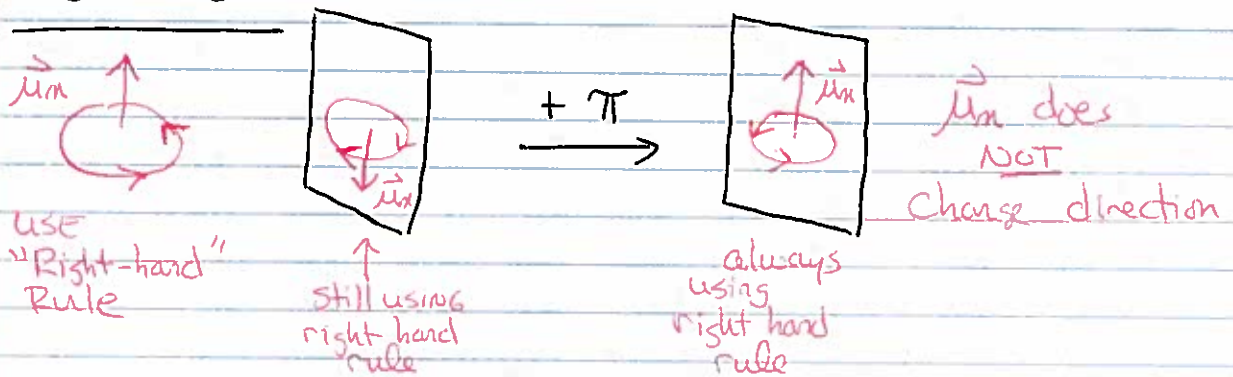 μ⃗m
USE
"Right-hand"
Rule
μ⃗m
still using
right hand
rule
+ π
μ⃗m
always
using
right hand
rule
μ⃗m does
NOT
Change direction